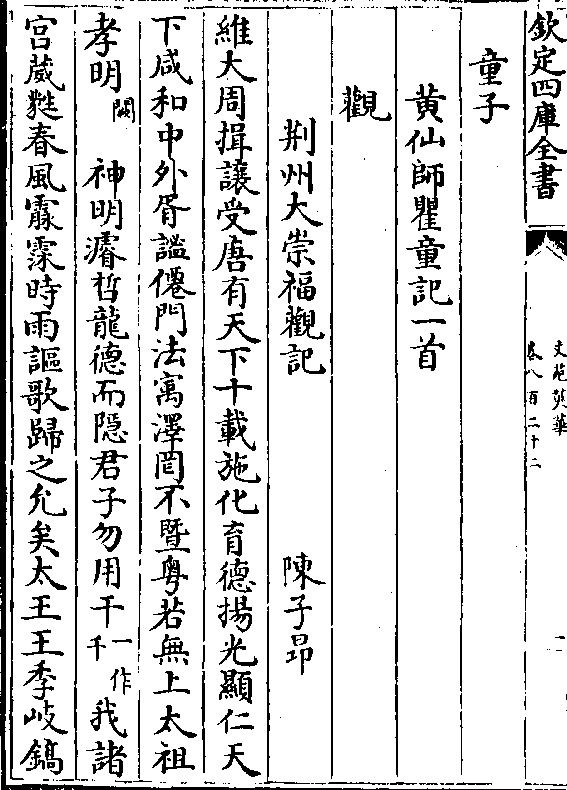 欽定四庫全書
文苑英華
卷八百二十二
一
童子
黃仙師瞿童記一首
觀
荆州大崇福觀記 陳子昂
維大周揖讓受唐有天下十載施化育德揚光顯仁天
下咸和中外胥謐僊門法寓澤罔不暨粤若無上太祖
孝明闕神明濬哲龍德而隠君子勿用干一作千我諸
宫葳㽔春風霢霂時雨謳歌歸之允矣太王王季岐鎬